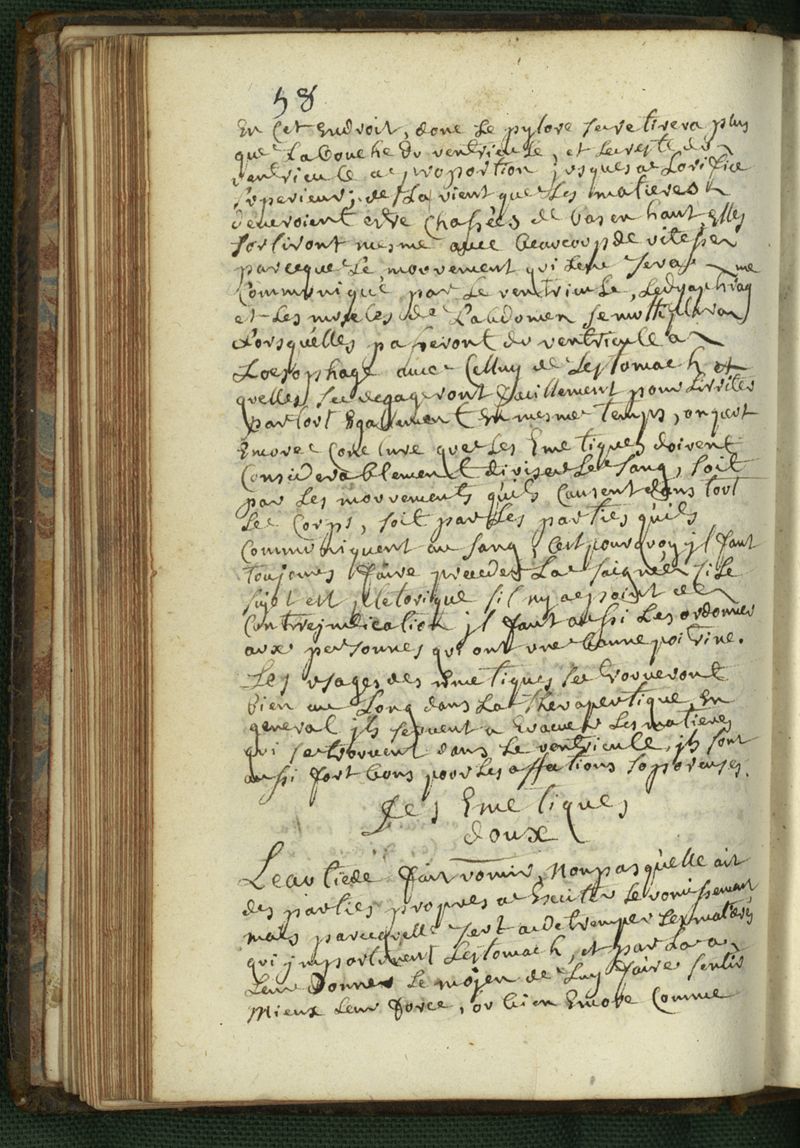 58
En Cet Endroit, donc Le pylore se retirera plus
que La bouche du ventricule, et Le reste du
ventricule a proportion jusques a Lorifice
superieur; de La vient que Les matieres
devevoient estre Chassées de bas en haut, Elles
sortiront mesme avec beaucoup de vitesse
parceque Le mouvement qui Leur sera
Communiqué par Le ventricule, Le dyaphragme
et Les muscles de L'abdomen se multipliera
Lorsquélles passeront du ventricule a
Loesophage avec Celluy de Lestomach et
quelles se degageront facillement pour Livrites
par tout Egalement En mesme temps, on peut
Encore Conclure que Les Emetiques doivent
Considerablement diviser Le sang, soit
par Les mouvements quils Causent dans tout
Le Corps, soit par Les parties quils
Communiquent au sang, Cest pourquoy jl faut
toujours faire preceder La saignée si Le
sujet est pletorique sil ny a point de
Contrejndication jl faut aussi Les ordonner
aux personnes qui ont une bonne poitrine.
Les usages des Emetiques se trouveront
bien au Long dans La therapeutique, En
general jls servent a Evacuer Les matieres
qui se trouvent dans Le ventricule, jls sont
aussi fort bons pour Les affections soporeuses.
Des Emetiques
doux
Leau tiede fait vomir, Non pas quelle ait
des parties propres a Exciter Le vomissement,
mais parcequelle sert a detremper Les matieres
qui jmportunent Lestomach, et par La a
Leur Donner Le moyen de Luy faire sentir
Mieux Leur force, ou bien Encore Comme